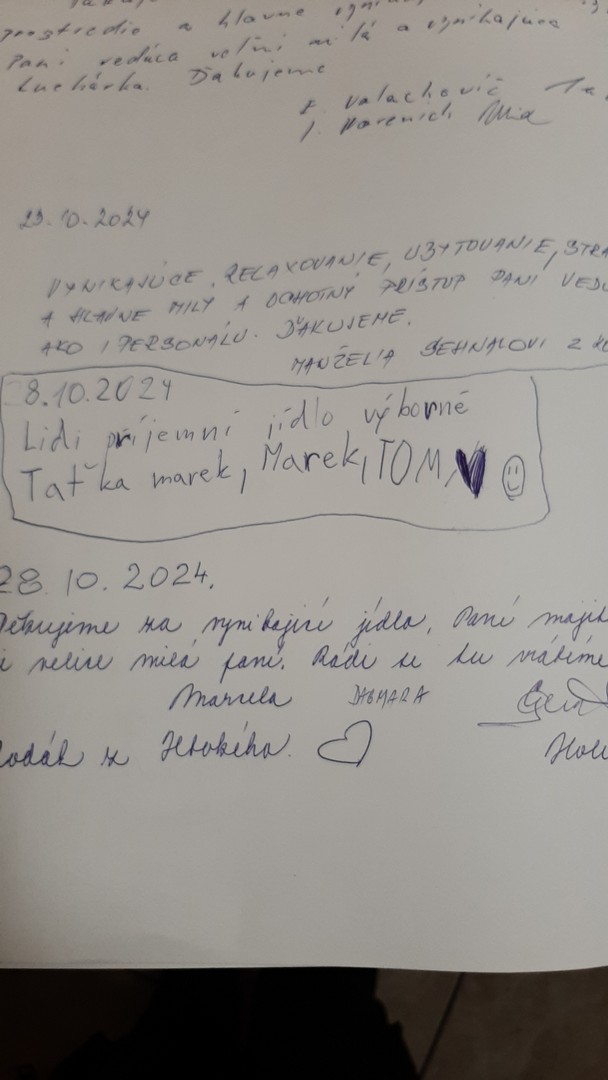 prostredie a hlavne
Pani vedúca veľmi milá a vynikajúca
kuchárka. Ďakujeme
F. Valachovič
J. Harenich
29.10.2024
VYNIKAJÚCE RELAXOVANIE, UBYTOVANIE, STRA
A HLAVNE MILÝ A OCHOTNÝ PRÍSTUP PANI VEDÚ
AKO I PERSONÁLU. ĎAKUJEME.
MANŽELIA SEHNALOVI Z
8.10.2024
Lidi príjemní jídlo výborné
Taťka marek, Marek, TOM,
28.10.2024.
Děkujeme za vynikající jídla. Paní majit
i velice milá paní. Rádi se tu vrátíme
Marcela DAGMARA
odák z